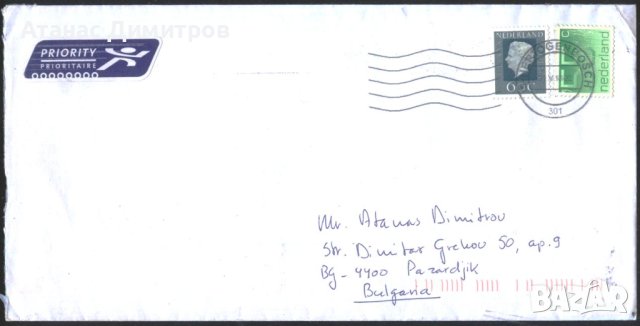 Атанас Димитров
PRIORITY
PRIORITAIRE
NEDERLAND
60C
nederland
301
Mr. Atanas Dimitrov
Str. Dimitar Grekov 50, ap.9
Bg - 4400 Pazardjik
Bulgaria
BAZAR